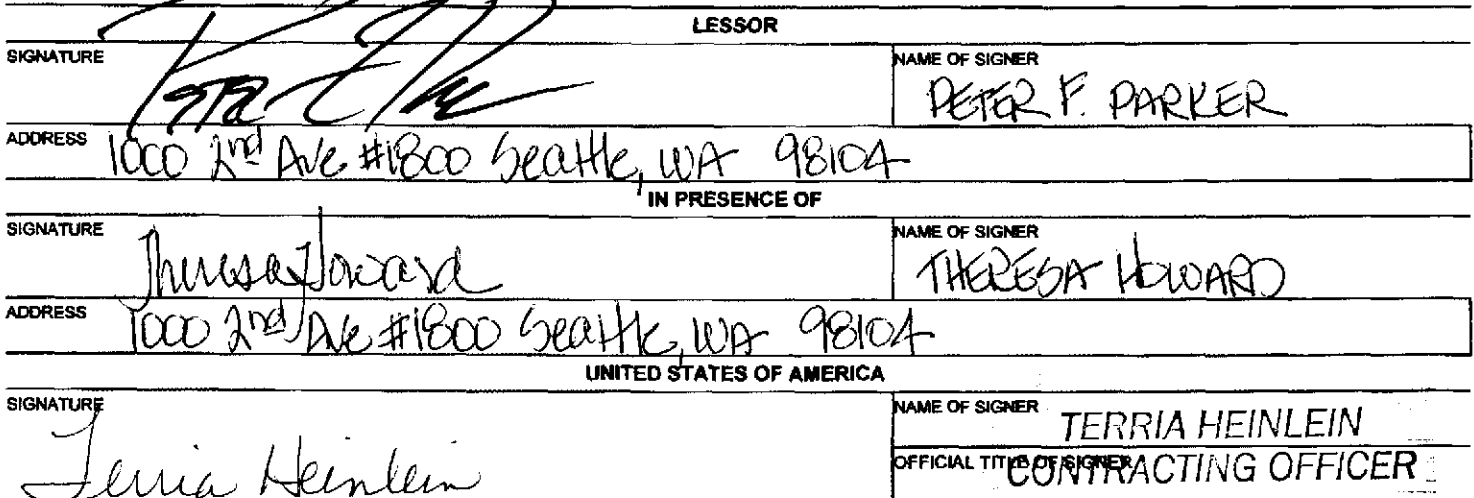 LESSOR
SIGNATURE
NAME OF SIGNER
PETER F. PARKER
ADDRESS 1000 2nd Ave #1800 Seattle, WA 98104
IN PRESENCE OF
SIGNATURE Theresa Howard
NAME OF SIGNER
THERESA HOWARD
ADDRESS 1000 2nd Ave #1800 Seattle, WA 98104
UNITED STATES OF AMERICA
SIGNATURE
Terria Heinlein
NAME OF SIGNER TERRIA HEINLEIN
OFFICIAL TITLE OF SIGNER CONTRACTING OFFICER